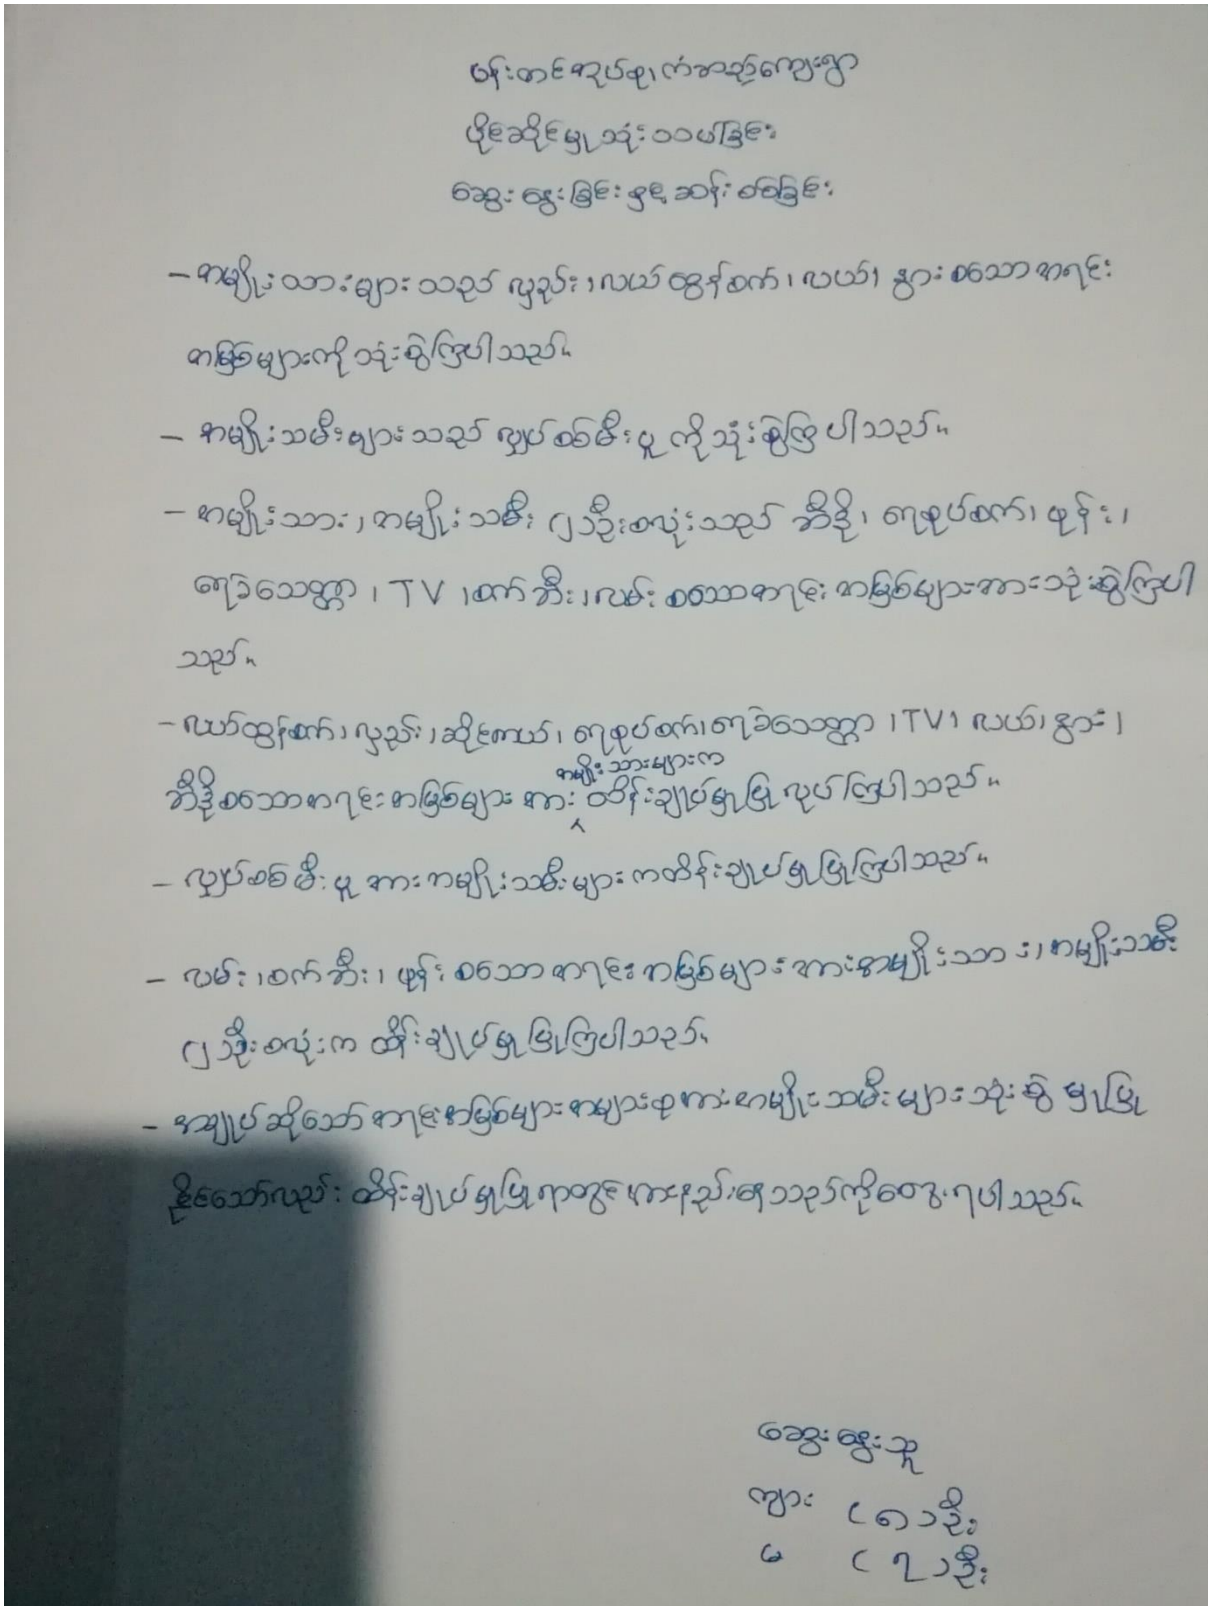 ပန်းတင်အုပ်စု၊ ကံအညှာကျေးရွာ
ပိုင်ဆိုင်မှု သုံးသပ်ခြင်း
ဆွေးနွေးခြင်းနှင့် ဆန်းစစ်ခြင်း
– အမျိုးသားများသည် လှည်း၊ လယ်ထွန်စက်၊ လယ်၊ နွားစသောအရင်း
အမြစ်များကို သုံးစွဲကြပါသည်။
– အမျိုးသမီးများသည် လျှပ်စစ်မီးပူကိုသုံးစွဲကြပါသည်။
– အမျိုးသား၊ အမျိုးသမီး ၂ဦးစလုံးသည် ဘီဒို၊ ရေစုပ်စက်၊ ဖုန်း၊
ရေခဲသေတ္တာ၊ TV ၊စက်ဘီး၊လမ်း စသောအရင်းအမြစ်များအားသုံးစွဲကြပါ
သည်။
– လယ်ထွန်စက်၊ လှည်း၊ ဆိုင်ကယ်၊ ရေစုပ်စက်၊ရေခဲသေတ္တာ ၊TV၊ လယ်၊ နွား၊
အမျိုးသားများက
ဘီဒိုစသောအရင်းအမြစ်များ အား ထိန်းချုပ်မှုပြုလုပ်ကြပါသည်။
– လျှပ်စစ်မီးပူအားအမျိုးသမီးများကထိန်းချုပ်မှုပြုကြပါသည်။
– လမ်း၊စက်ဘီး၊ ဖုန်းစသောအရင်းအမြစ်များအားအမျိုးသား၊အမျိုးသမီး
၂ဦးစလုံးက ထိန်းချုပ်မှုပြုကြပါသည်။
– အချုပ်ဆိုသော်အရင်းအမြစ်များအများစုအားအမျိုးသမီးများသုံးစွဲမှုပြု
နိုင်သော်လည်း ထိန်းချုပ်မှုပြုရာတွင်အားနည်းနေသည်ကိုတွေ့ရပါသည်။
ဆွေးနွေးသူ
ကျား (၈)ဦး
မ (၇)ဦး